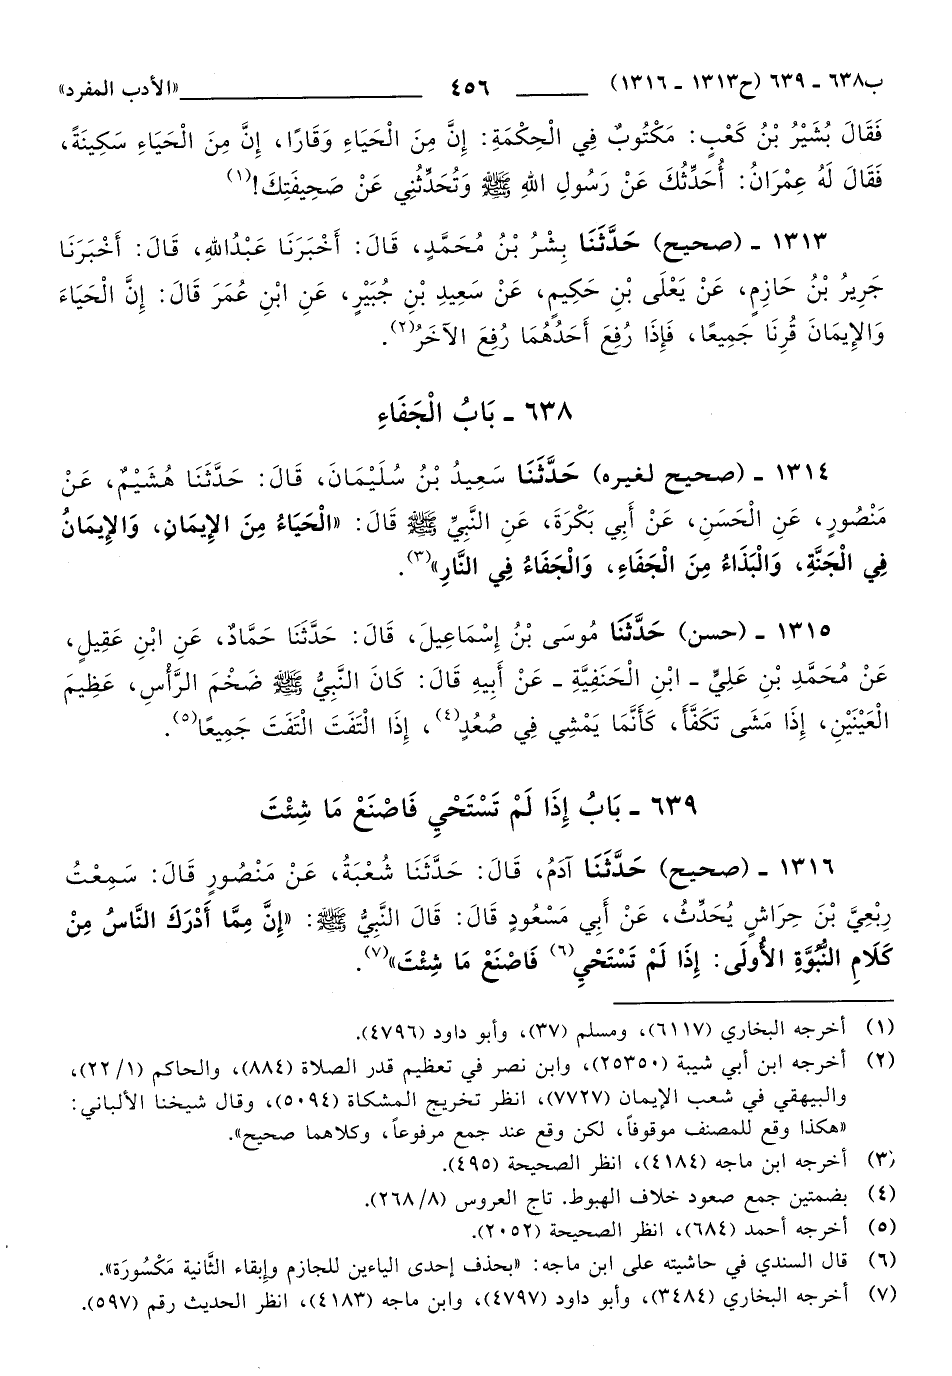 ب٦٣٨ ـ ٦٣٩ (ح١٣١٣ ـ ١٣١٦) ٤٥٦ «الأدب المفرد»
فَقَالَ بُشَيْرُ بْنُ كَعْبٍ: مَكْتُوبٌ فِي الْحِكْمَةِ: إِنَّ مِنَ الْحَيَاءِ وَقَارًا، إِنَّ مِنَ الْحَيَاءِ سَكِينَةً،
فَقَالَ لَهُ عِمْرَانُ: أُحَدِّثُكَ عَنْ رَسُولِ اللهِ ﷺ وَتُحَدِّثُنِي عَنْ صَحِيفَتِكَ!(١)
١٣١٣ ـ (صحيح) حَدَّثَنَا بِشْرُ بْنُ مُحَمَّدٍ، قَالَ: أَخْبَرَنَا عَبْدُاللهِ، قَالَ: أَخْبَرَنَا
جَرِيرُ بْنُ حَازِمٍ، عَنْ يَعْلَى بْنِ حَكِيمٍ، عَنْ سَعِيدِ بْنِ جُبَيْرٍ، عَنِ ابْنِ عُمَرَ قَالَ: إِنَّ الْحَيَاءَ
وَالإِيمَانَ قُرِنَا جَمِيعًا، فَإِذَا رُفِعَ أَحَدُهُمَا رُفِعَ الآخَرُ(٢).
٦٣٨ ـ بَابُ الْجَفَاءِ
١٣١٤ ـ (صحيح لغيره) حَدَّثَنَا سَعِيدُ بْنُ سُلَيْمَانَ، قَالَ: حَدَّثَنَا هُشَيْمٌ، عَنْ
مَنْصُورٍ، عَنِ الْحَسَنِ، عَنْ أَبِي بَكْرَةَ، عَنِ النَّبِيِّ ﷺ قَالَ: «الْحَيَاءُ مِنَ الإِيمَانِ، وَالإِيمَانُ
فِي الْجَنَّةِ، وَالْبَذَاءُ مِنَ الْجَفَاءِ، وَالْجَفَاءُ فِي النَّارِ»(٣).
١٣١٥ ـ (حسن) حَدَّثَنَا مُوسَى بْنُ إِسْمَاعِيلَ، قَالَ: حَدَّثَنَا حَمَّادٌ، عَنِ ابْنِ عَقِيلٍ،
عَنْ مُحَمَّدِ بْنِ عَلِيٍّ ـ ابْنِ الْحَنَفِيَّةِ ـ عَنْ أَبِيهِ قَالَ: كَانَ النَّبِيُّ ﷺ ضَخْمَ الرَّأْسِ، عَظِيمَ
الْعَيْنَيْنِ، إِذَا مَشَى تَكَفَّأَ، كَأَنَّمَا يَمْشِي فِي صُعُدٍ(٤)، إِذَا الْتَفَتَ الْتَفَتَ جَمِيعًا(٥).
٦٣٩ ـ بَابُ إِذَا لَمْ تَسْتَحْيِ فَاصْنَعْ مَا شِئْتَ
١٣١٦ ـ (صحيح) حَدَّثَنَا آدَمُ، قَالَ: حَدَّثَنَا شُعْبَةُ، عَنْ مَنْصُورٍ قَالَ: سَمِعْتُ
رِبْعِيَّ بْنَ حِرَاشٍ يُحَدِّثُ، عَنْ أَبِي مَسْعُودٍ قَالَ: قَالَ النَّبِيُّ ﷺ: «إِنَّ مِمَّا أَدْرَكَ النَّاسُ مِنْ
كَلَامِ النُّبُوَّةِ الأُولَى: إِذَا لَمْ تَسْتَحْيِ(٦) فَاصْنَعْ مَا شِئْتَ»(٧).
(١) أخرجه البخاري (٦١١٧)، ومسلم (٣٧)، وأبو داود (٤٧٩٦).
(٢) أخرجه ابن أبي شيبة (٢٥٣٥٠)، وابن نصر في تعظيم قدر الصلاة (٨٨٤)، والحاكم (٢٢/١)،
والبيهقي في شعب الإيمان (٧٧٢٧)، انظر تخريج المشكاة (٥٠٩٤)، وقال شيخنا الألباني:
«هكذا وقع للمصنف موقوفاً، لكن وقع عند جمع مرفوعاً، وكلاهما صحيح».
(٣) أخرجه ابن ماجه (٤١٨٤)، انظر الصحيحة (٤٩٥).
(٤) بضمتين جمع صعود خلاف الهبوط. تاج العروس (٢٦٨/٨).
(٥) أخرجه أحمد (٦٨٤)، انظر الصحيحة (٢٠٥٢).
(٦) قال السندي في حاشيته على ابن ماجه: «بحذف إحدى الياءين للجازم وإبقاء الثانية مَكْسُورَة».
(٧) أخرجه البخاري (٣٤٨٤)، وأبو داود (٤٧٩٧)، وابن ماجه (٤١٨٣)، انظر الحديث رقم (٥٩٧).